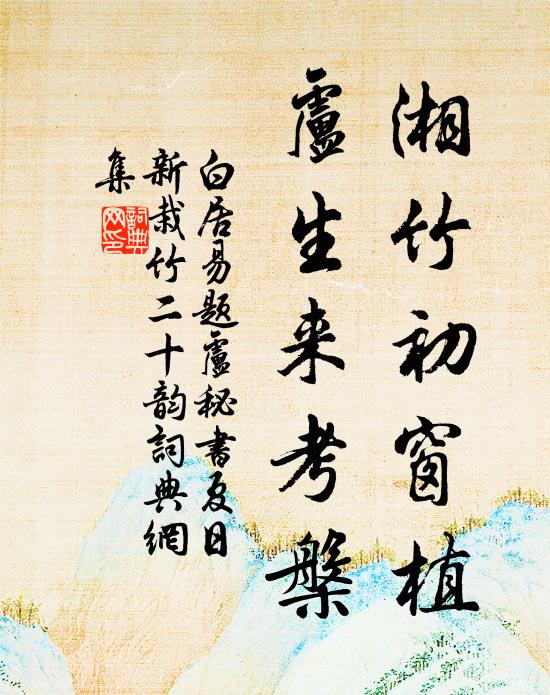 湘竹初窗植
盧生来考槃
白居易题盧秘書夏日
新栽竹二十韵詞典網
集
詞典
网印